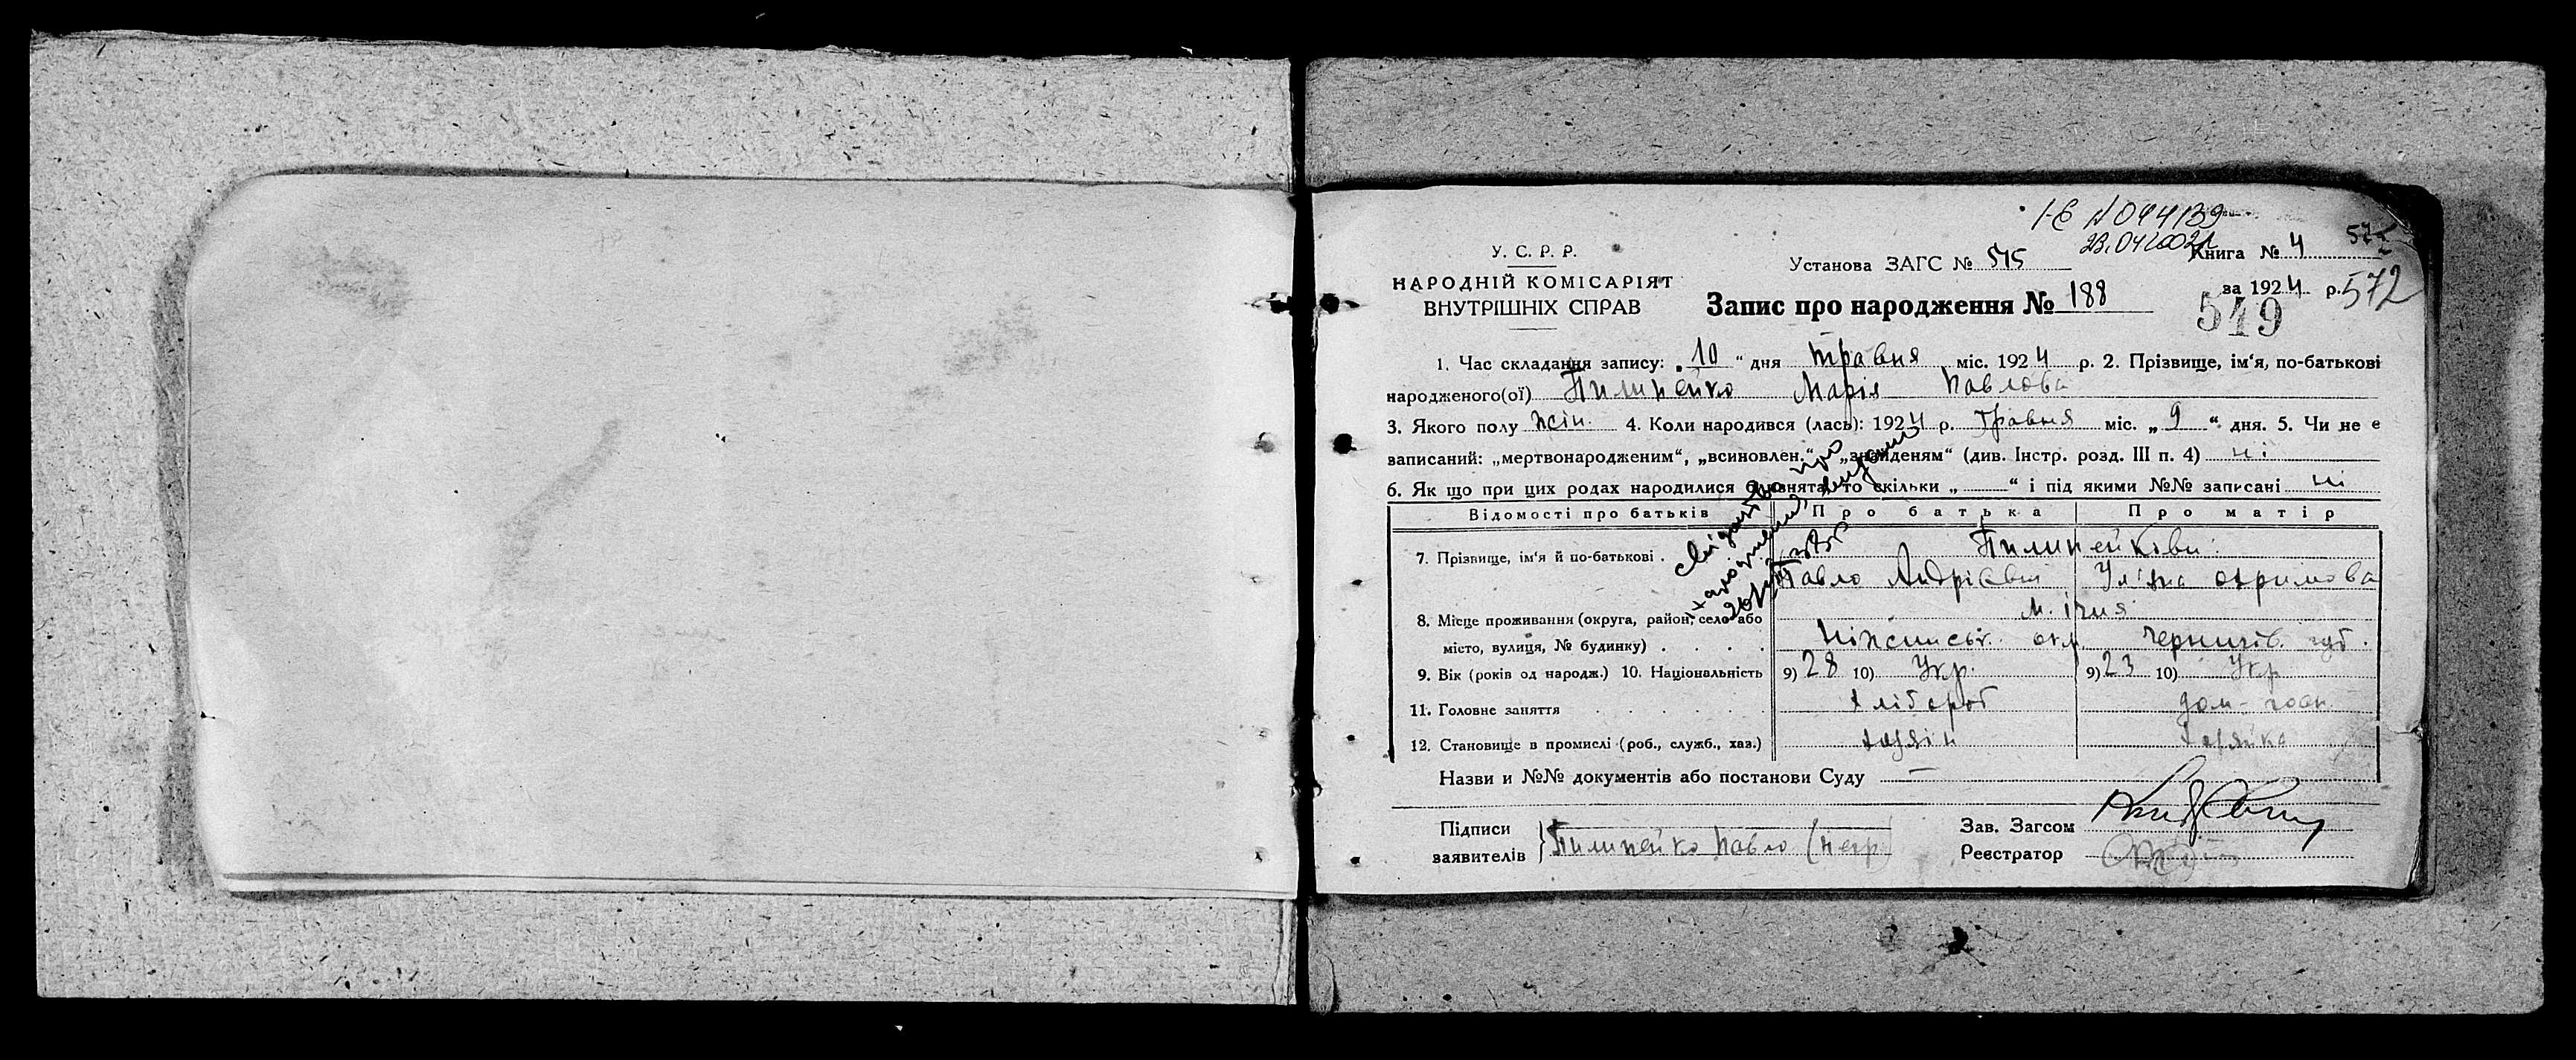 І-Є № 044139
23.04.2002р
У. С. Р. Р.
НАРОДНІЙ КОМІСАРІЯТ
ВНУТРІШНІХ СПРАВ
Установа ЗАГС № 515
Книга № 4
572
Запис про народження № 188
за 1924 р. 572
549
1. Час складання запису: „10“ дня травня міс. 1924 р. 2. Прізвище, ім‘я, по-батькові
народженого(ої) Пилипейко Марія Павлова
3. Якого полу жін. 4. Коли народився (лась): 1924 р. травня міс. „ 9 “ дня. 5. Чи не є
записаний: „мертвонародженим“, „всиновлен.“, „знайденям“ (див. Інстр. розд. III п. 4) ні
6. Як що при цих родах народилися близнята, то скільки „ “ і під якими №№ записані ні
Відомості про батьків Про батька Про матір
7. Прізвище, ім‘я й по-батькові . Пилипейківи
Павло Андрієвич Уляна Охримова
8. Місце проживання (округа, район, село або м. Ічня
місто, вулиця, № будинку) . . . . Ніженськ. окр Чернигів. губ.
9. Вік (років од народж.) 10. Національність 9) 28 10) Укр. 9) 23 10) Укр
11. Головне заняття . . . . . . хлібороб дом-госп.
12. Становище в промислі (роб., служб., хаз.) хазяїн хазяйка
Назви и №№ документів або постанови Суду —
Підписи
заявителів } Пилипейко Павло (негр
Зав. Загсом
Реєстратор
свідоцтво про
народження